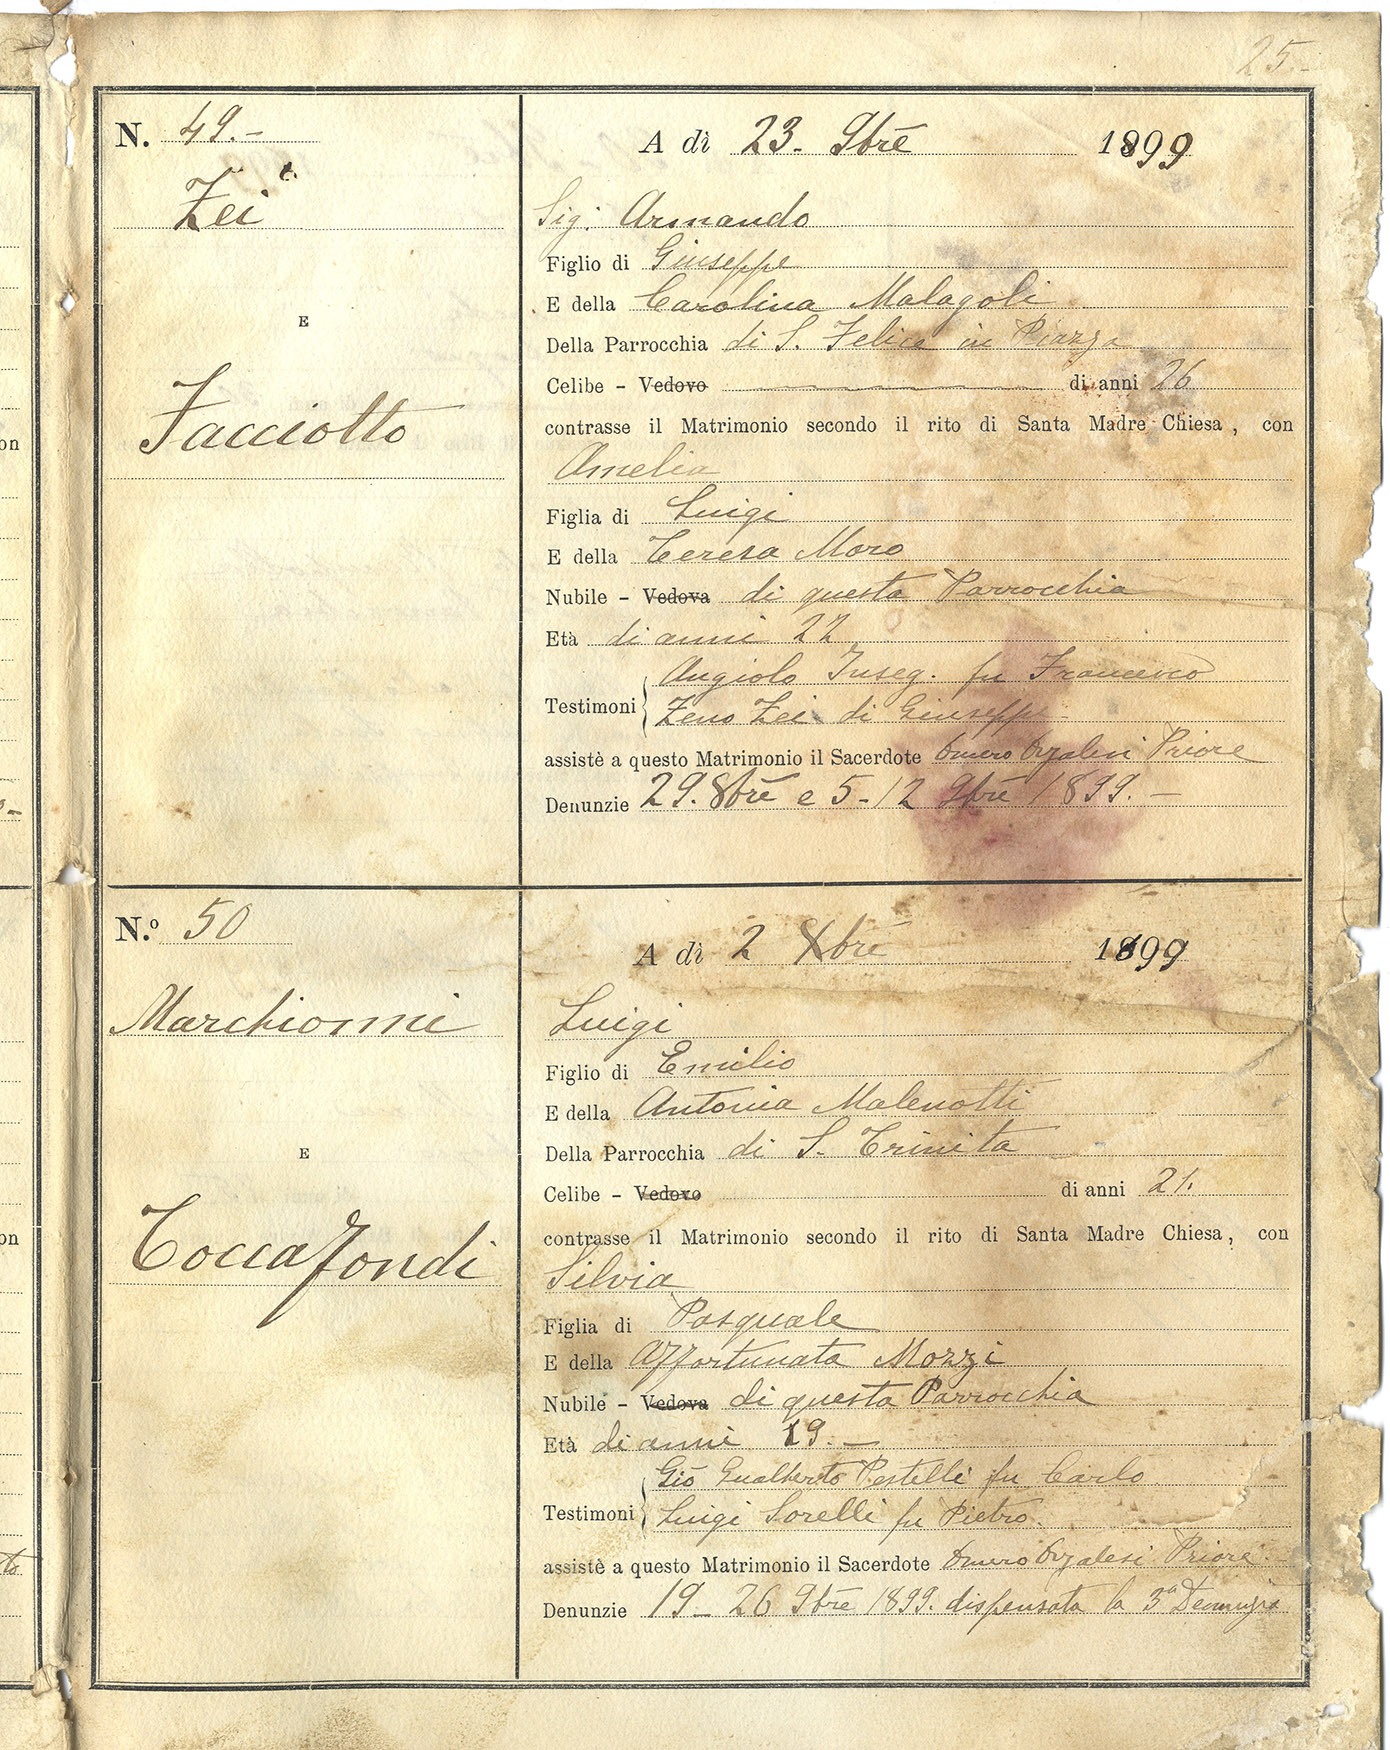 25.-
N. 49.-
Zei
E
Facciotto
A dì 23. 9brē 1899
Sig: Armando
Figlio di Giuseppe
E della Carolina Malagoli
Della Parrocchia di S. Felice in Piazza
Celibe - Vedovo di anni 26
contrasse il Matrimonio secondo il rito di Santa Madre Chiesa, con
Amelia
Figlia di Luigi
E della Teresa Moro
Nubile - Vedova di questa Parrocchia
Età di anni 22
Angiolo Inseg. fu Francesco
Testimoni
Zeno Zei di Giuseppe
assistè a questo Matrimonio il Sacerdote Omero Orzalesi Priore
Denunzie 29. 8brē e 5-12 9brē 1899.-
N.º 50
Marchionni
E
Toccafondi
A dì 2 Xbrē 1899
Luigi
Figlio di Emilio
E della Antonia Malenotti
Della Parrocchia di S. Trinita
Celibe - Vedovo di anni 21.
contrasse il Matrimonio secondo il rito di Santa Madre Chiesa, con
Silvia
Figlia di Pasquale
E della Affortunata Mozzi
Nubile - Vedova di questa Parrocchia
Età di anni 19.-
Gio Gualberto Pestelli fu Carlo
Testimoni
Luigi Sorelli fu Pietro.
assistè a questo Matrimonio il Sacerdote Omero Orzalesi Priore.
Denunzie 19- 26 9brē 1899. dispensata la 3ª Denunzia
on
on